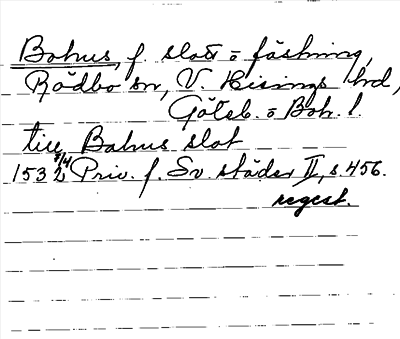 Bohus, f. slott o fästning,
Rödbo sn, V. Hisings hd,
Göteb. o Boh. l.
till Bahus slot
1532 8/4 Priv. f. Sv. städer II, s. 456.
regest.